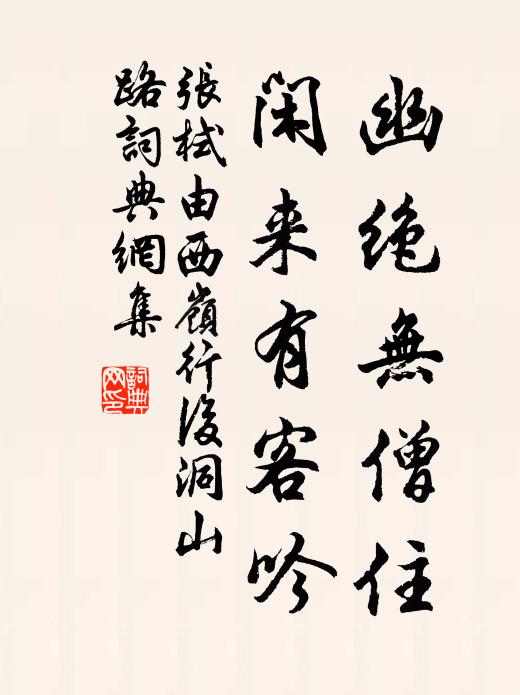 幽絶無僧住
閑来有客吟
張栻由西嶺行後洞山
路詞典網集
詞典網印